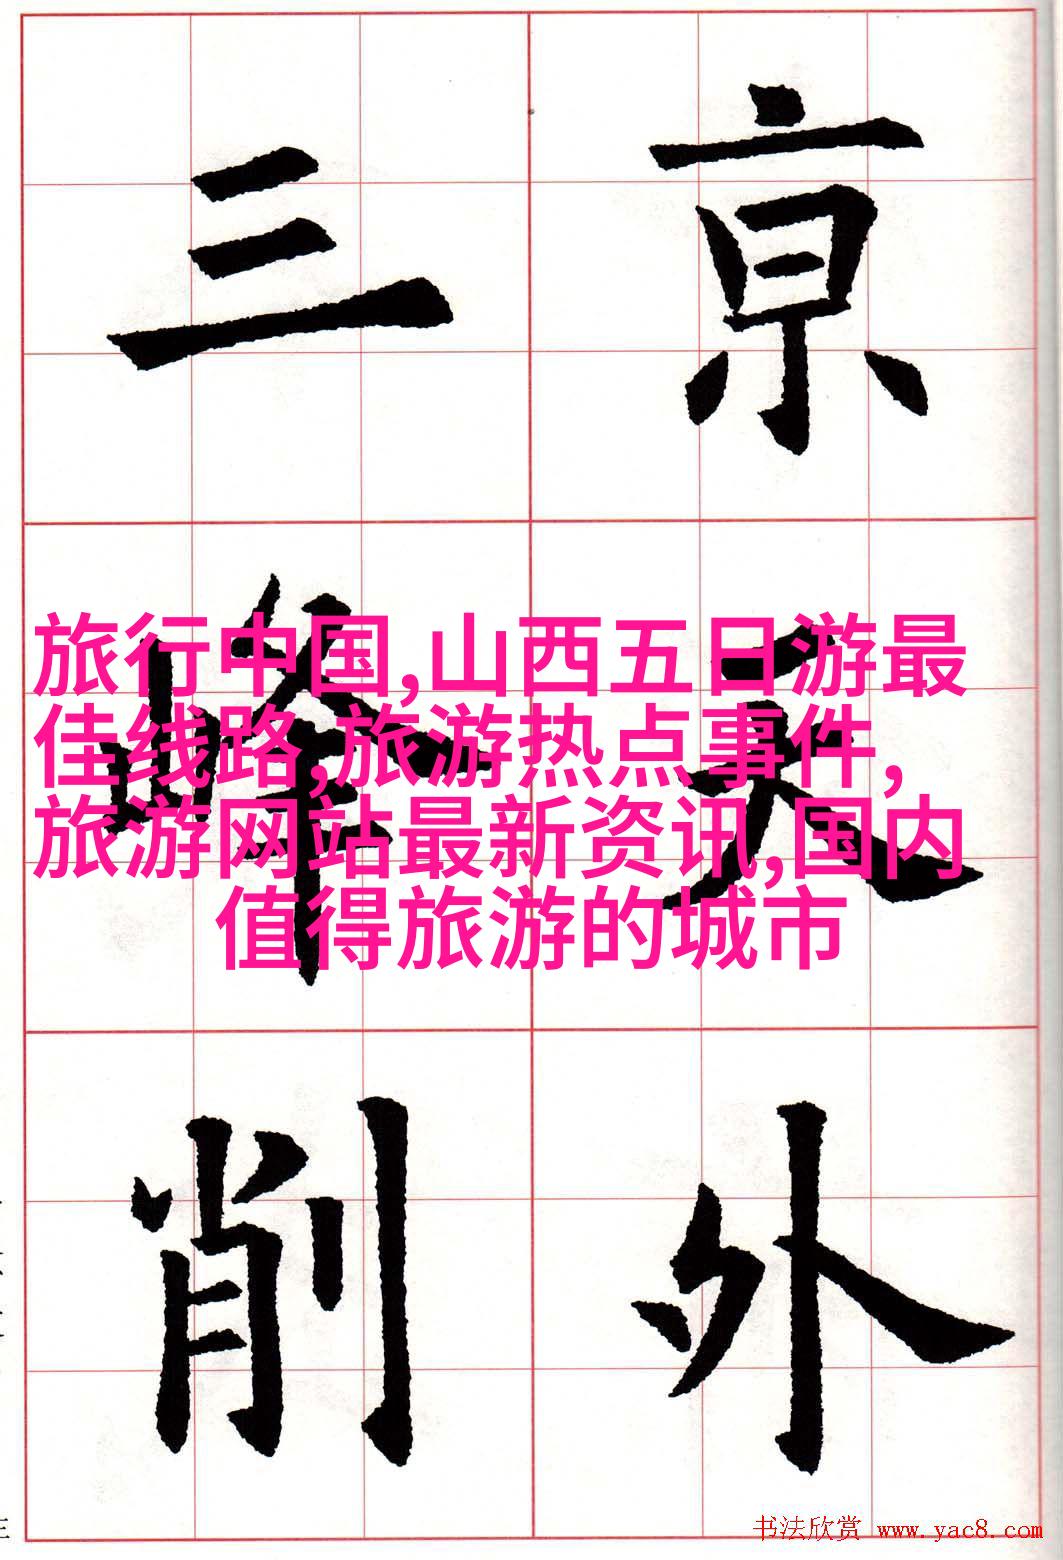 亰天外
三峰削
旅行中国,山西五日游最
佳线路,旅游热点事件,
旅游网站最新资讯,国内
值得旅游的城市
书法欣赏 www.yac8.com